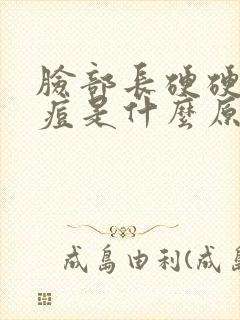 臉部長硬硬
痘是什麼原
成島由利(成島